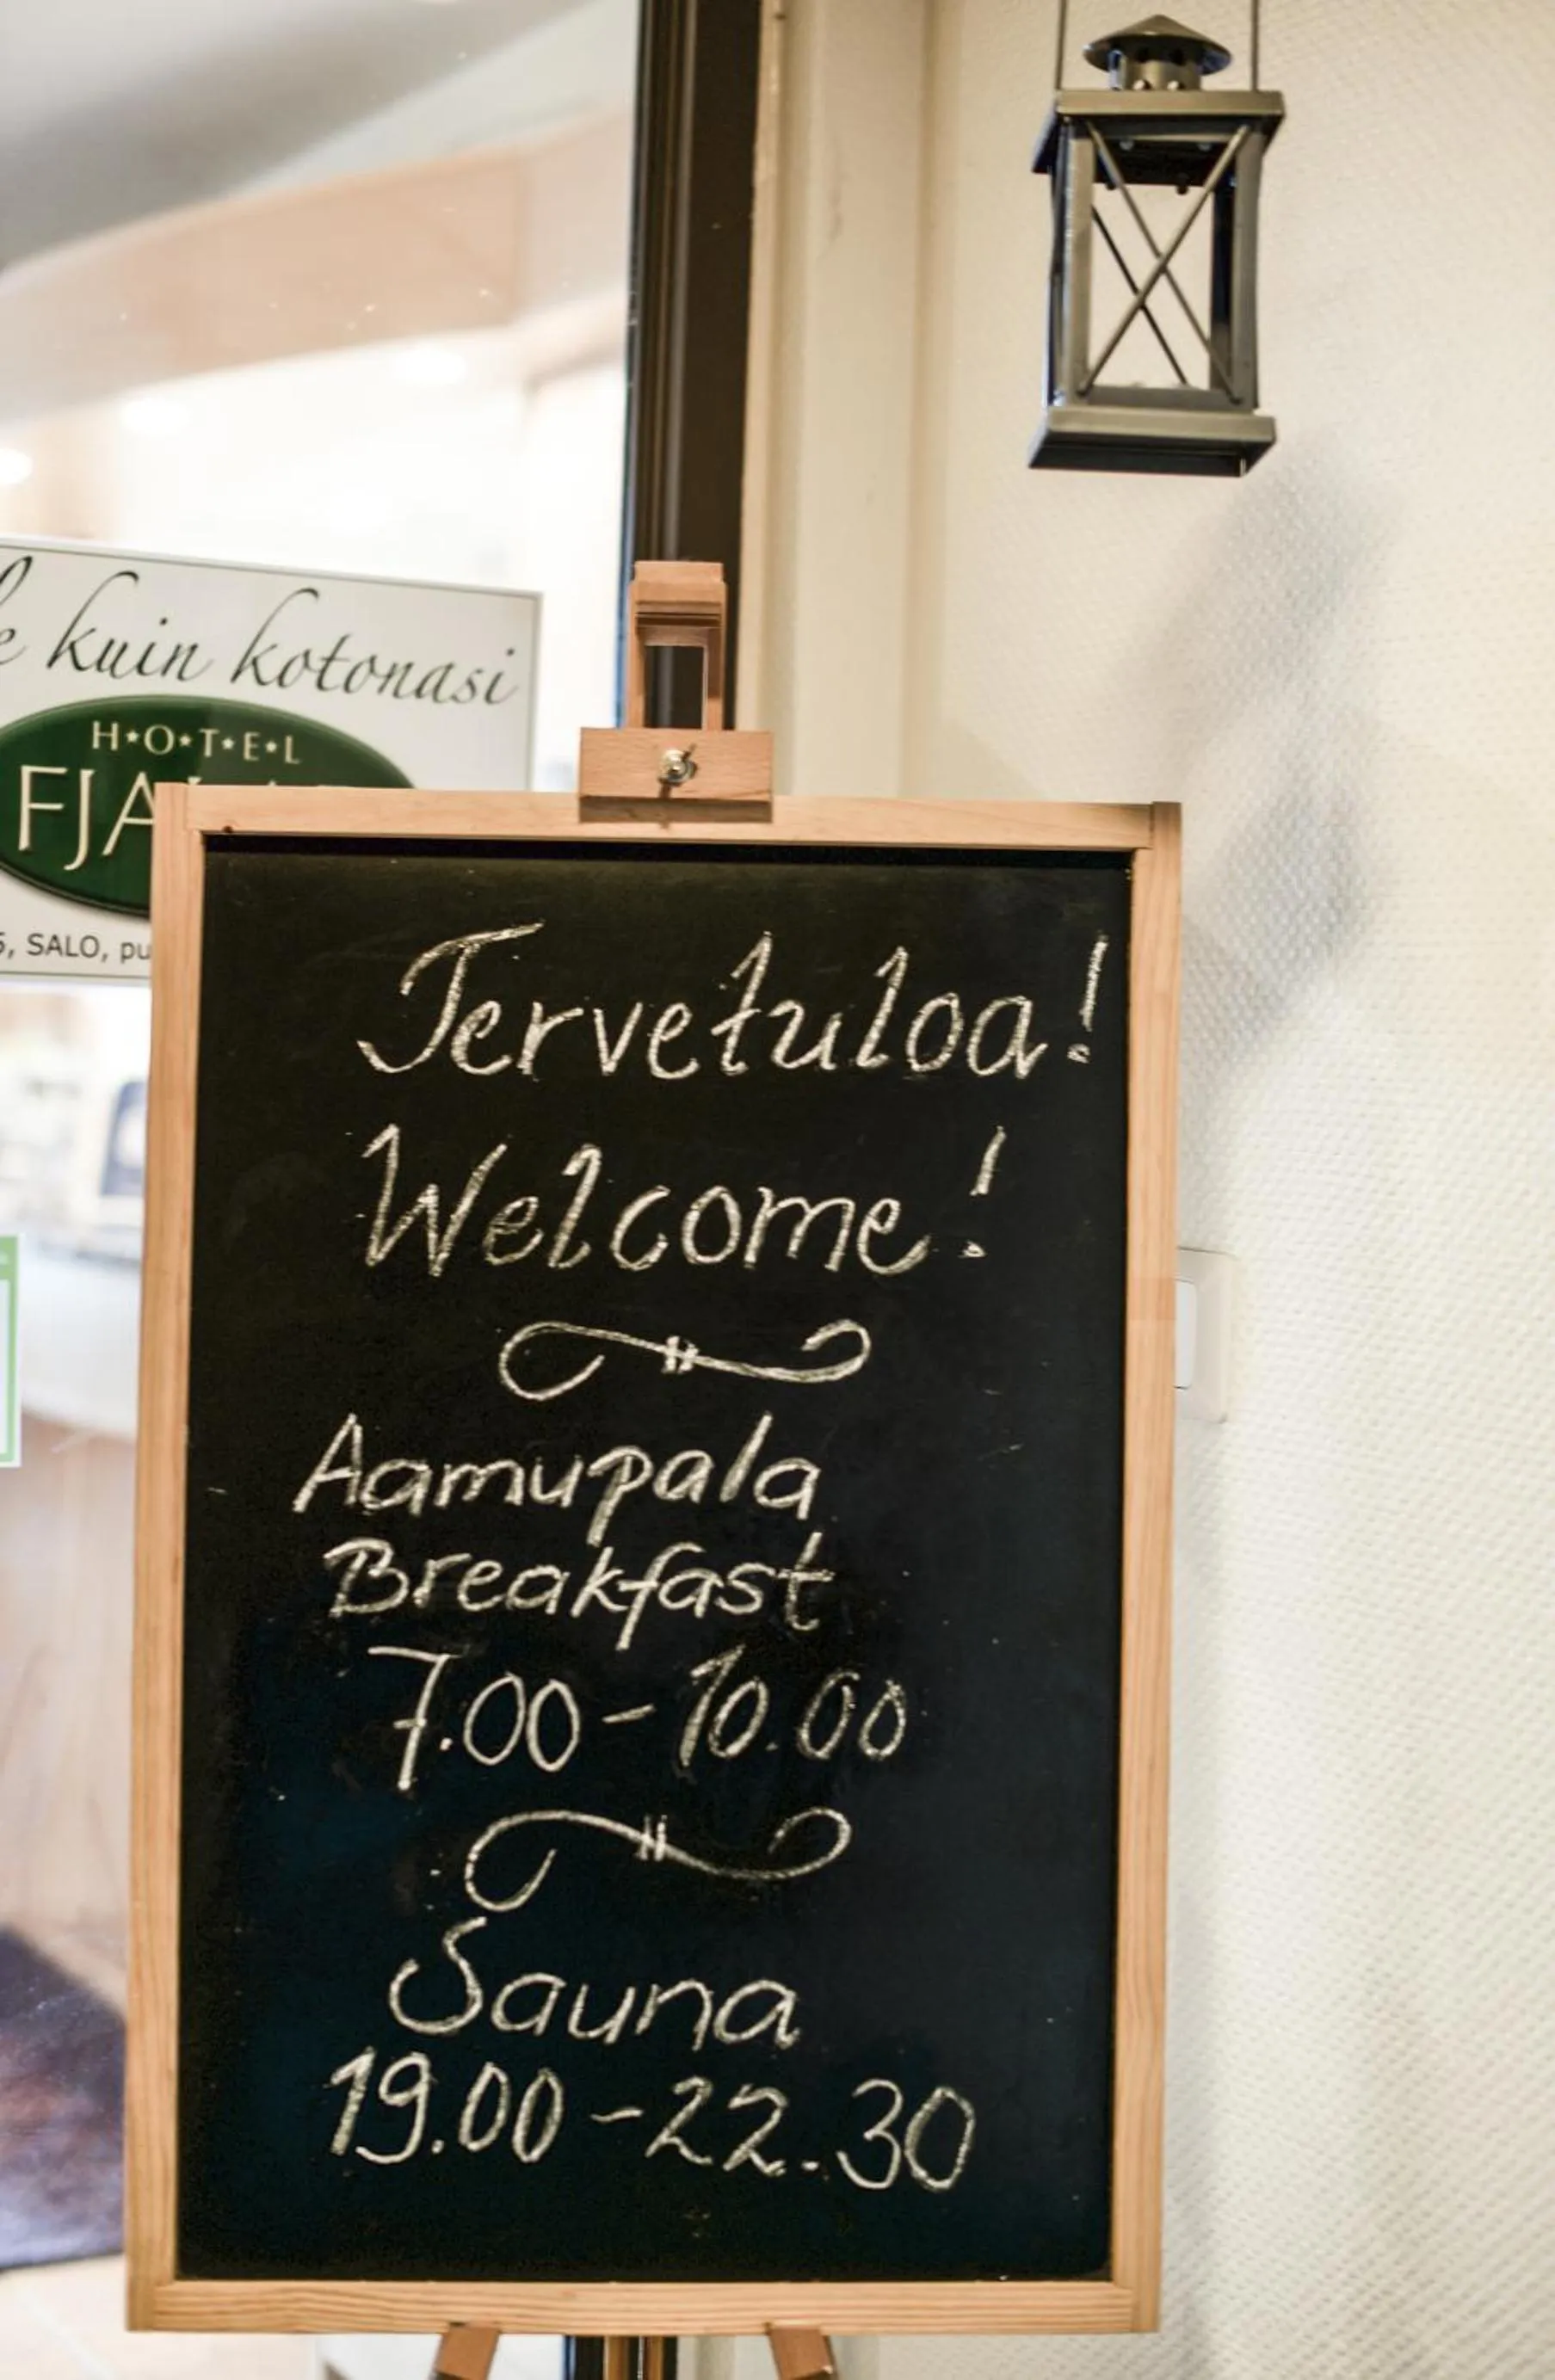 kuin kotonasi
H★O★T★E★L
5, SALO,
Tervetuloa!
Welcome!
Aamupala
Breakfast
7.00-10.00
Sauna
19.00-22.30